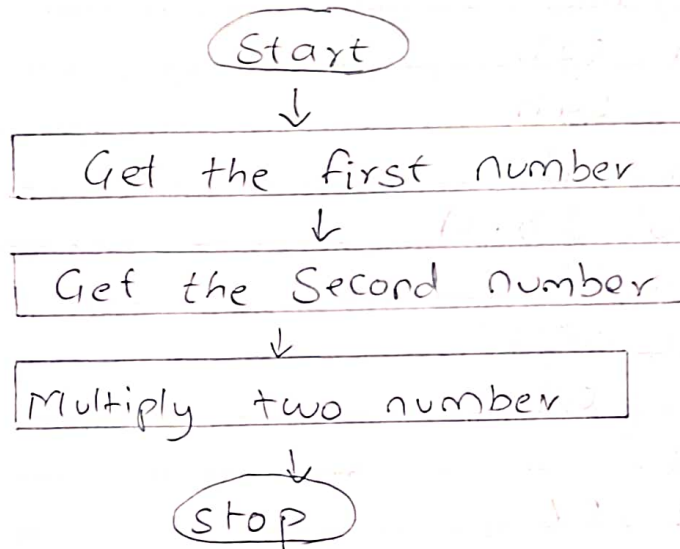 Start
Get the first number
Get the Second number
Multiply two number
stop